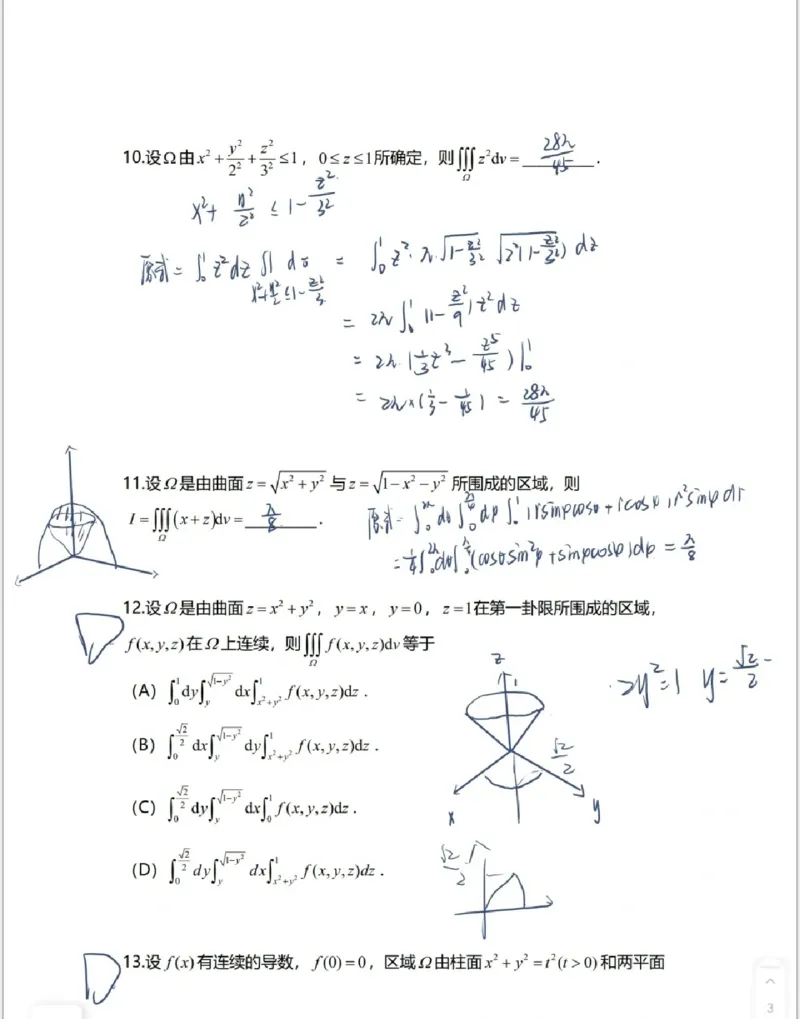 10.设Ω由x²+y²/2²+z²/3²≤1，0≤z≤1所确定，则∭_Ω z²dv= 28π/45 .
x²+y²/2² ≤ 1-z²/3²
原式= ∫₀¹z²dz∬ dσ = ∫₀¹z²·π√(1-z²/3²) √(2²(1-z²/3²)) dz
= 2π∫₀¹(1-z²/9)z²dz
= 2π(1/3 z³ - z⁵/45)|₀¹
= 2π×(1/3-1/45) = 28π/45
11.设Ω是由曲面z=√(x²+y²)与z=√(1-x²-y²)所围成的区域，则
I=∭_Ω(x+z)dv= π/8 .
12.设Ω是由曲面z=x²+y²，y=x，y=0，z=1在第一卦限所围成的区域，
D
f(x,y,z)在Ω上连续，则∭_Ω f(x,y,z)dv等于
(A) ∫₀¹dy∫_y^√(1-y²)dx∫_{x²+y²}^1 f(x,y,z)dz .
2y²=1 y=√2/2
(B) ∫₀^(√2/2)dx∫_y^√(1-y²)dy∫_{x²+y²}^1 f(x,y,z)dz .
(C) ∫₀^(√2/2)dy∫_y^√(1-y²)dx∫₀¹f(x,y,z)dz .
(D) ∫₀^(√2/2)dy∫_y^√(1-y²)dx∫_{x²+y²}^1 f(x,y,z)dz .
z
1
√2/2
x
y
√2/2
D
13.设f(x)有连续的导数，f(0)=0，区域Ω由柱面x²+y²=t²(t>0)和两平面
3